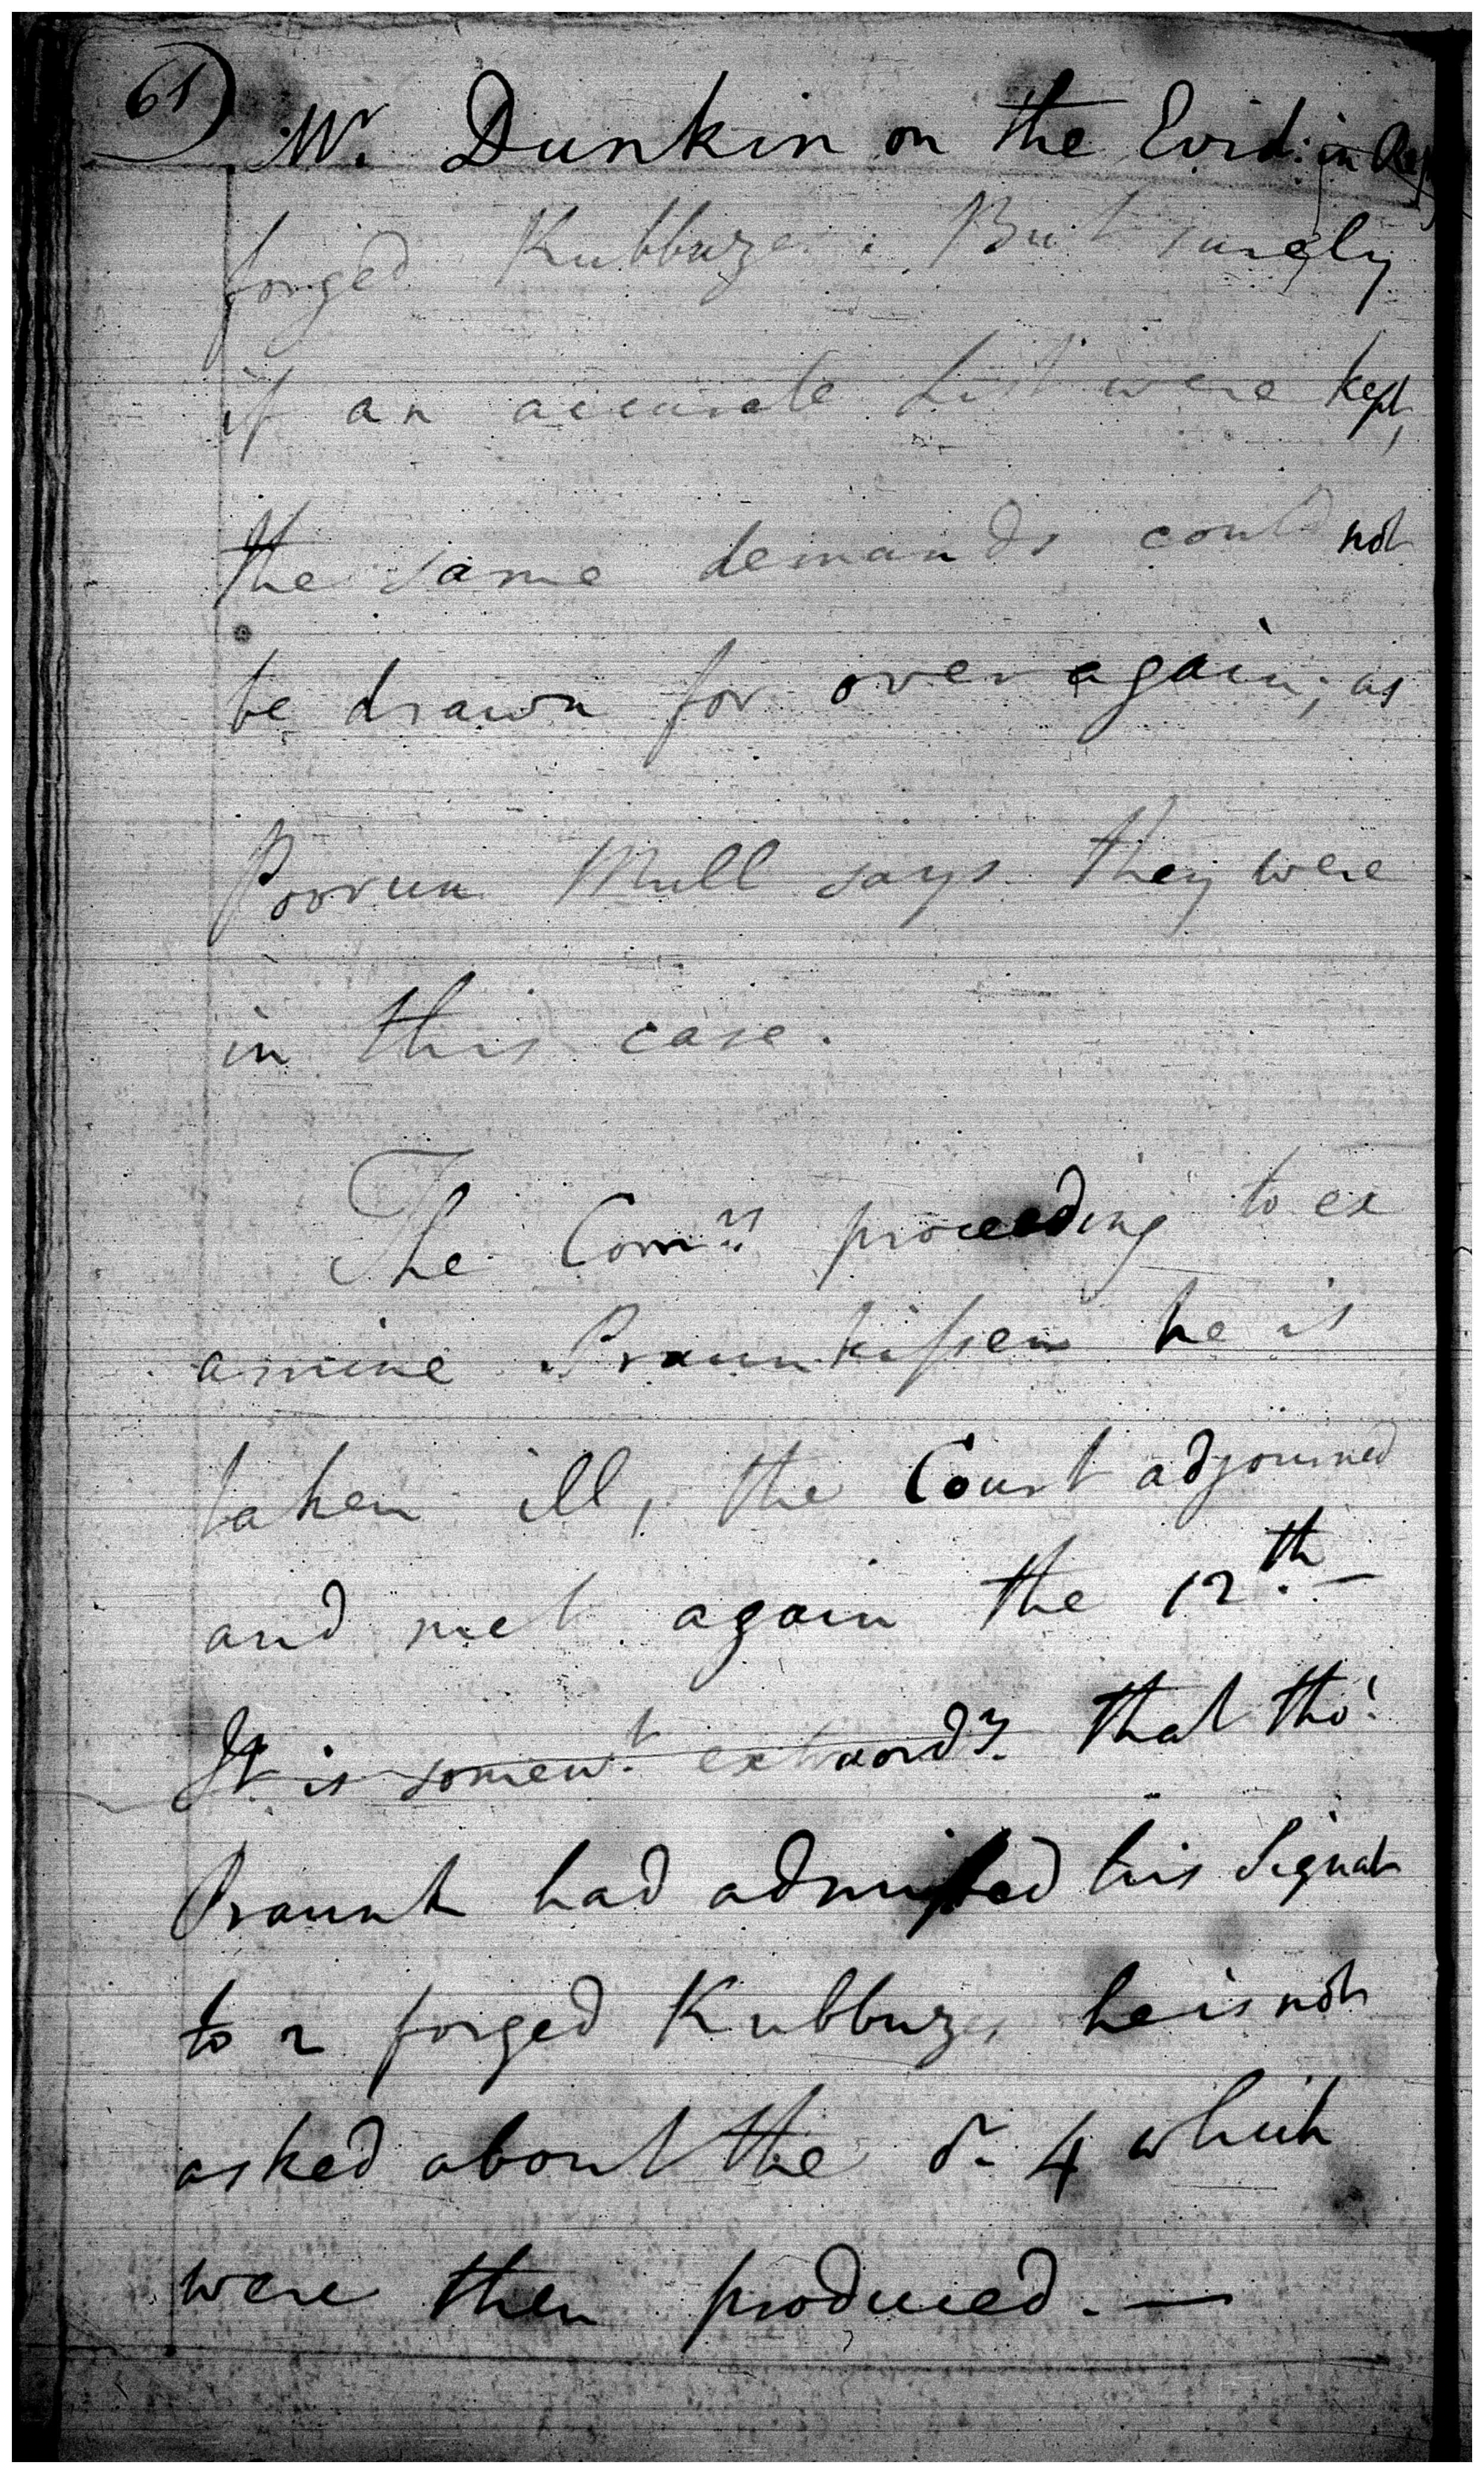 61) Mr. Dunkin on the Evid: in Rep
forged Kubbuzes: But surely
if an accurate List were kept,
the same demands could not
be drawn for over again; as
Poorun Mull says they were
in this case.
The Comrs. proceeding to ex
amine Praunkissen he is
taken ill, the Court adjourned
and met again the 12th.
It is somewt. extraordy. that tho'
Praunk had admitted his Signat
to 2 forged Kubbuzes he is not
asked about the or 4 which
were then produced. —